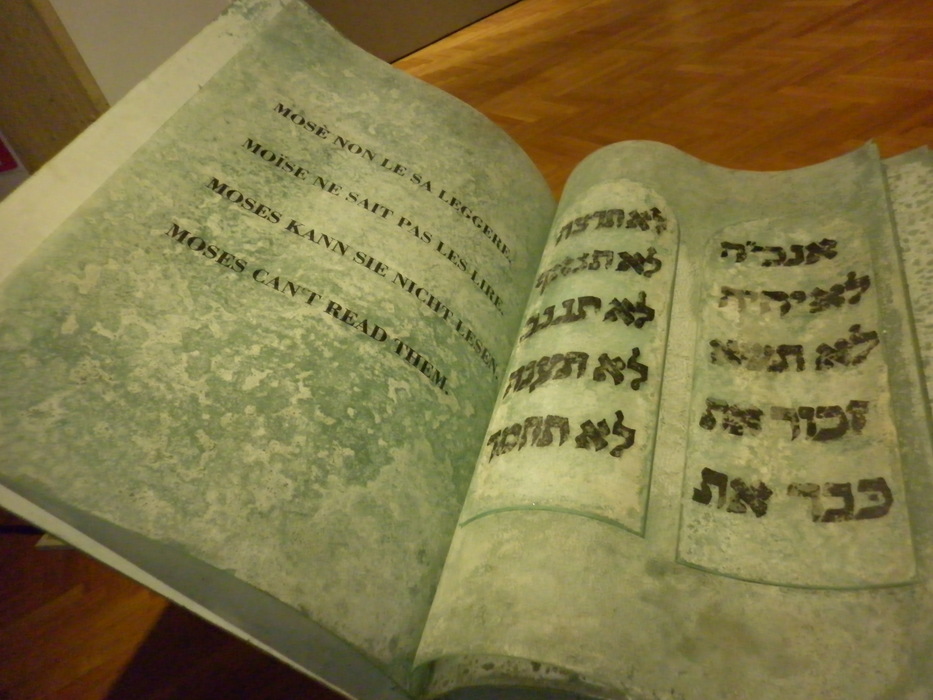 MOSÈ NON LE SA LEGGERE.
MOÏSE NE SAIT PAS LES LIRE.
MOSES KANN SIE NICHT LESEN.
MOSES CAN'T READ THEM.
אנכי ה
לא יהיה
לא תשא
זכור את
כבד את
לא תרצח
לא תנאף
לא תגנב
לא תענה
לא תחמד